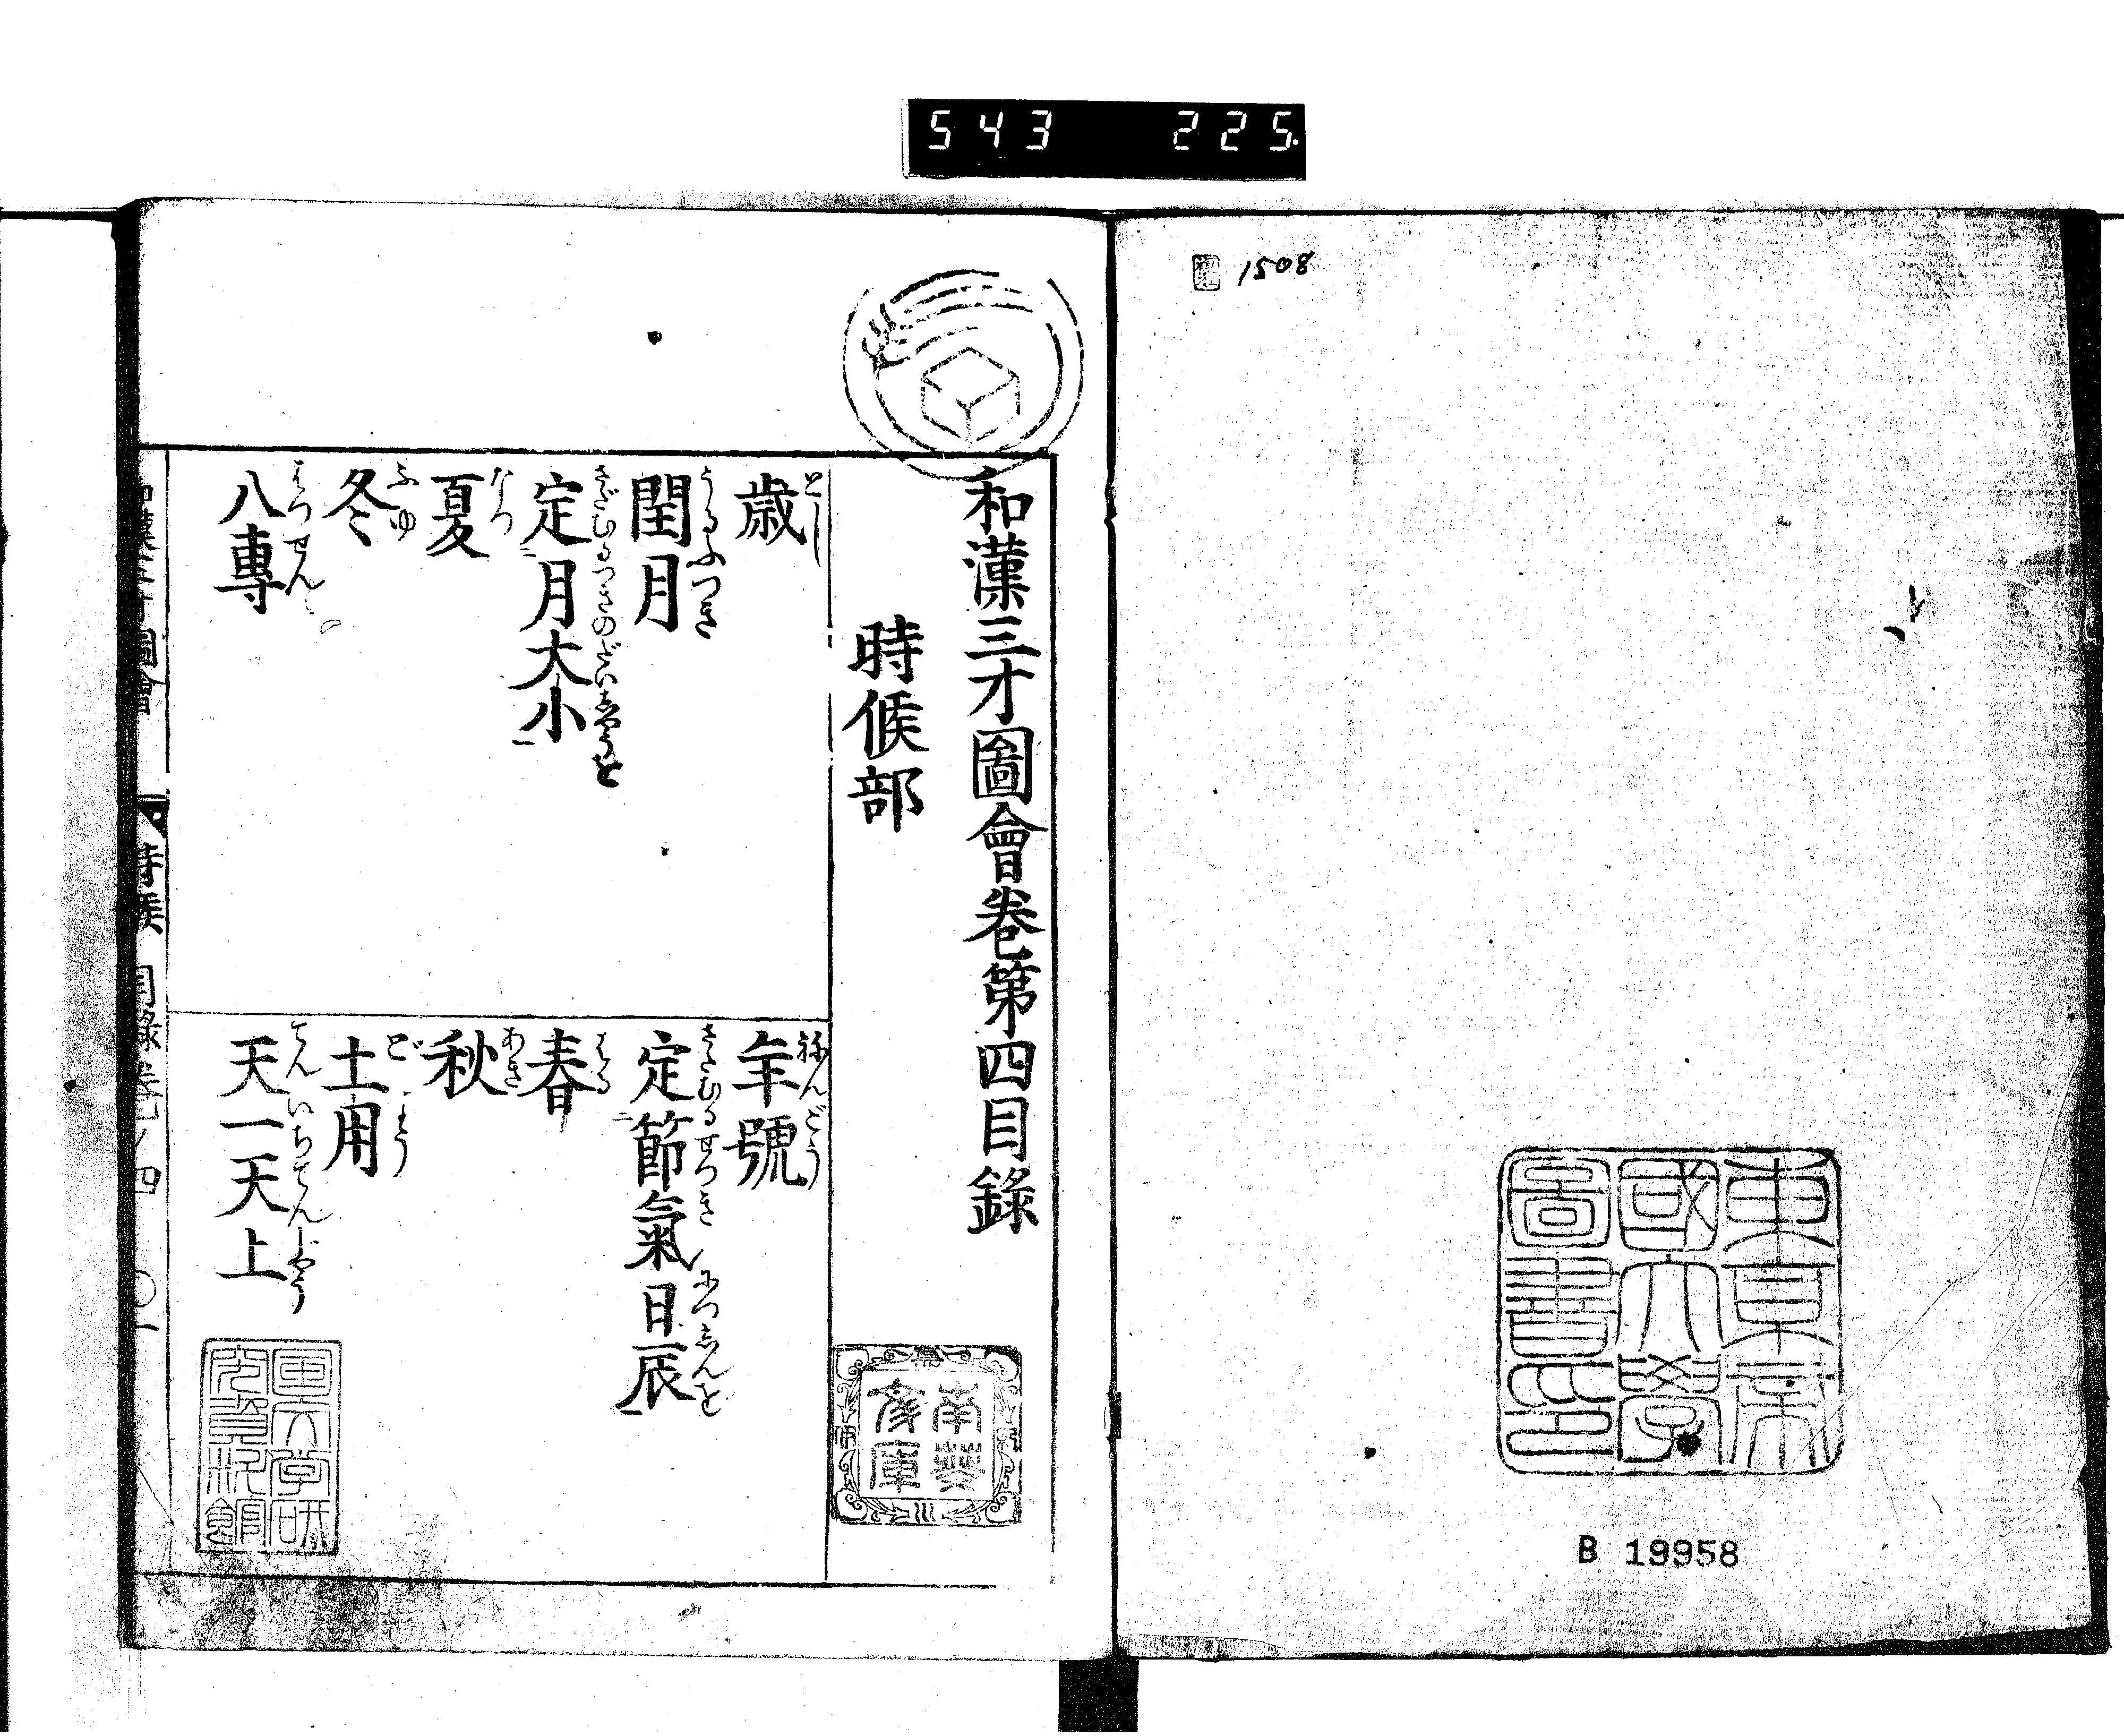 543 225.
1508
東京帝
國大學
圖書印
B 19958
和漢三才圖會卷第四目錄
時候部
歳 とし
年號 ねんごう
閏月 うるふつき
定節氣日辰 さだむるせつき につしんを
定月大小 さだむるつきのだいしやうを
春 はる
夏 なつ
秋 あき
冬 ふゆ
土用 どよう
八專 はつせん
天一天上 てんいちてんじやう
南葵
文庫
時候 目錄 卷ノ四 〇一